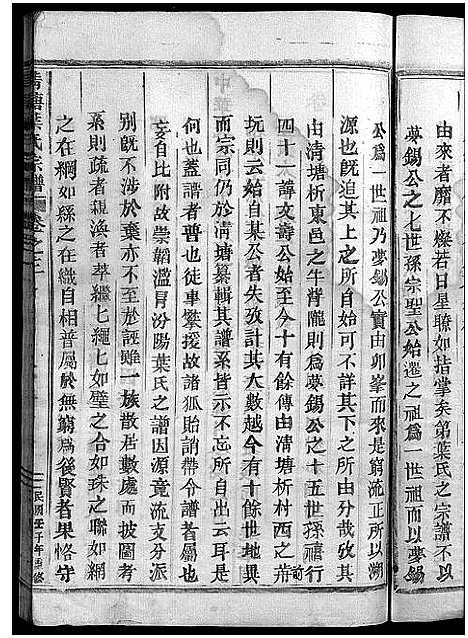 由來者靡不燦若日星瞭如指掌矣第葉氏之宗譜不以
夢錫公之七世孫宗聖公始遷之祖爲一世祖而以夢錫
公爲一世祖乃夢錫公實由卯峯而來是窮流正所以溯
源也旣追其上之所自始可不詳其下之所由分哉攷其
由清塘析東邑之牛背隴則爲夢錫公之十五世孫禧行
四十一諱文壽公始至今十有餘傳由清塘析村西之前
坑則云始自某公者失攷計其人數越今有十餘世地異
而宗同仍於清塘纂輯其譜系皆示不忘所自出云耳是
何也蓋譜者普也徒事繁援故諸狐貽誚帶令譜者屬也
妄自比附故崇韜濫冒汾陽葉氏之譜因源竟流支分派
別旣不涉於棄亦不至於誣雖一族散居數處而披圖考
系則疏者親渙者萃繼七繩七如璧之合如珠之聯如網
之在綱如絲之在織自相普屬於無窮爲後賢者果恪守
清塘葉氏宗譜
卷之二
民國壬子年重修